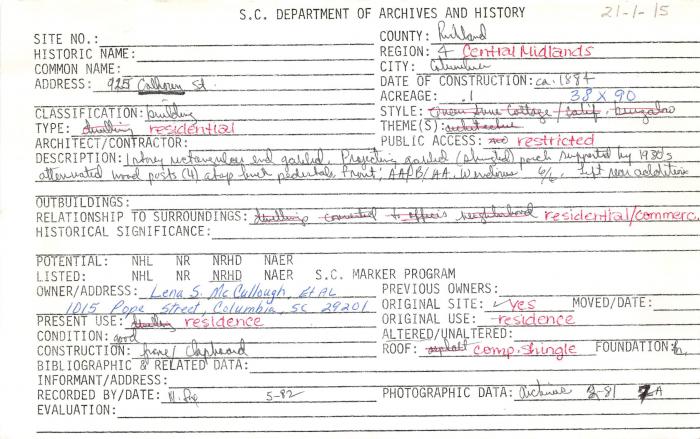 S.C. DEPARTMENT OF ARCHIVES AND HISTORY 21-1-15
SITE NO.: COUNTY: Richland
HISTORIC NAME: REGION: 4 Central Midlands
COMMON NAME: CITY: Columbia
ADDRESS: 925 Calhoun St DATE OF CONSTRUCTION: ca. 1884
ACREAGE: .1 38 x 90
CLASSIFICATION: building STYLE: Queen Anne Cottage / Calif. bungalow
TYPE: dwelling residential THEME(S): architecture
ARCHITECT/CONTRACTOR: PUBLIC ACCESS: restricted
DESCRIPTION: 1 story rectangular end gabled. Projecting gabled (shingled) porch supported by 1930s
attenuated wood posts (4) atop brick pedestals. Front; AA/B/AA. Windows 6/6. Left rear addition
OUTBUILDINGS:
RELATIONSHIP TO SURROUNDINGS: dwelling converted to offices neighborhood residential/commerc.
HISTORICAL SIGNIFICANCE:
POTENTIAL: NHL NR NRHD NAER
LISTED: NHL NR NRHD NAER S.C. MARKER PROGRAM
OWNER/ADDRESS: Lena S. McCullough, Et AL PREVIOUS OWNERS:
1015 Pope Street, Columbia, SC 29201 ORIGINAL SITE: yes MOVED/DATE:
PRESENT USE: dwelling residence ORIGINAL USE: residence
CONDITION: good ALTERED/UNALTERED:
CONSTRUCTION: frame/ Clapboard ROOF: asphalt comp. shingle FOUNDATION:
BIBLIOGRAPHIC & RELATED DATA:
INFORMANT/ADDRESS:
RECORDED BY/DATE: 5-82 PHOTOGRAPHIC DATA: Archives 3-81 7A
EVALUATION: